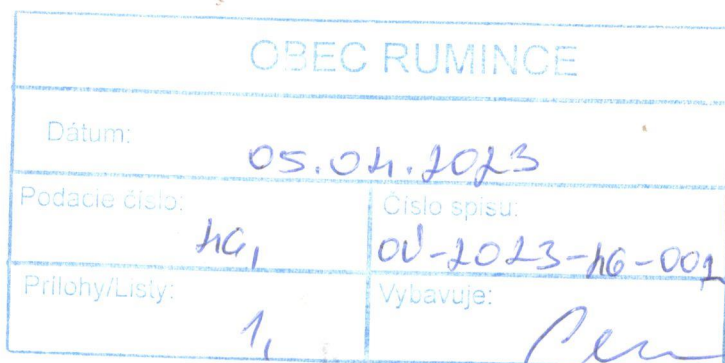 OBEC RUMINCE
Dátum:
05.04.2023
Podacie číslo:
46,
Číslo spisu:
OÚ-2023-46-001
Prílohy/Listy:
1,
Vybavuje: